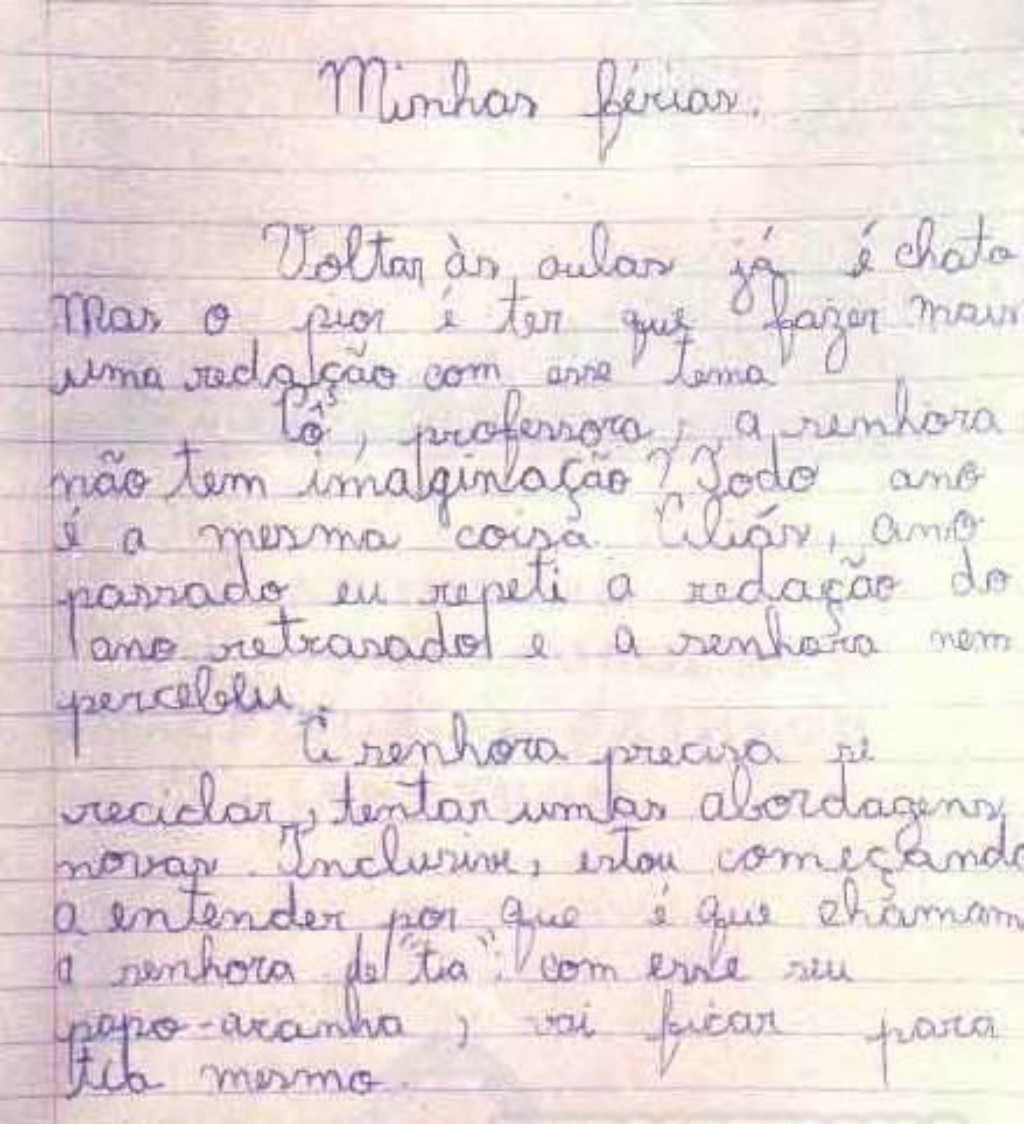 Minhas férias.
Voltar às aulas já é chato
Mas o pior é ter que fazer mais
uma redação com esse tema
Pô, professora, a senhora
não tem imaginação? Todo ano
é a mesma coisa. Aliás, ano
passado eu repeti a redação do
ano retrasado e a senhora nem
percebeu.
A senhora precisa se
reciclar, tentar umas abordagens
novas. Inclusive, estou começando
a entender por que é que chamam
a senhora de "tia": com esse seu
papo-aranha, vai ficar para
tia mesmo.